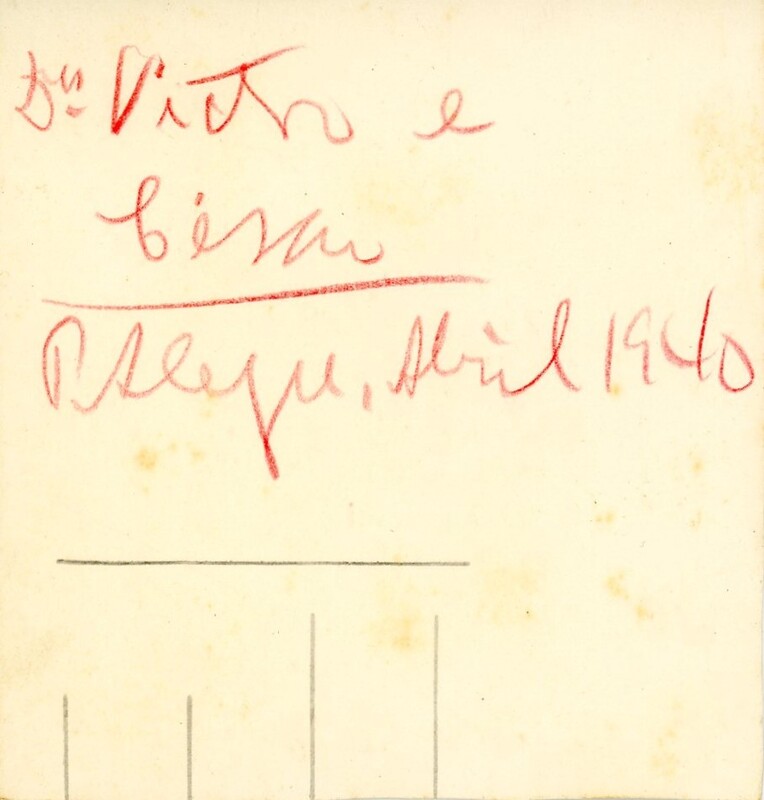 Drs Victor e
Cesar
P. Alegre, Abril 1940